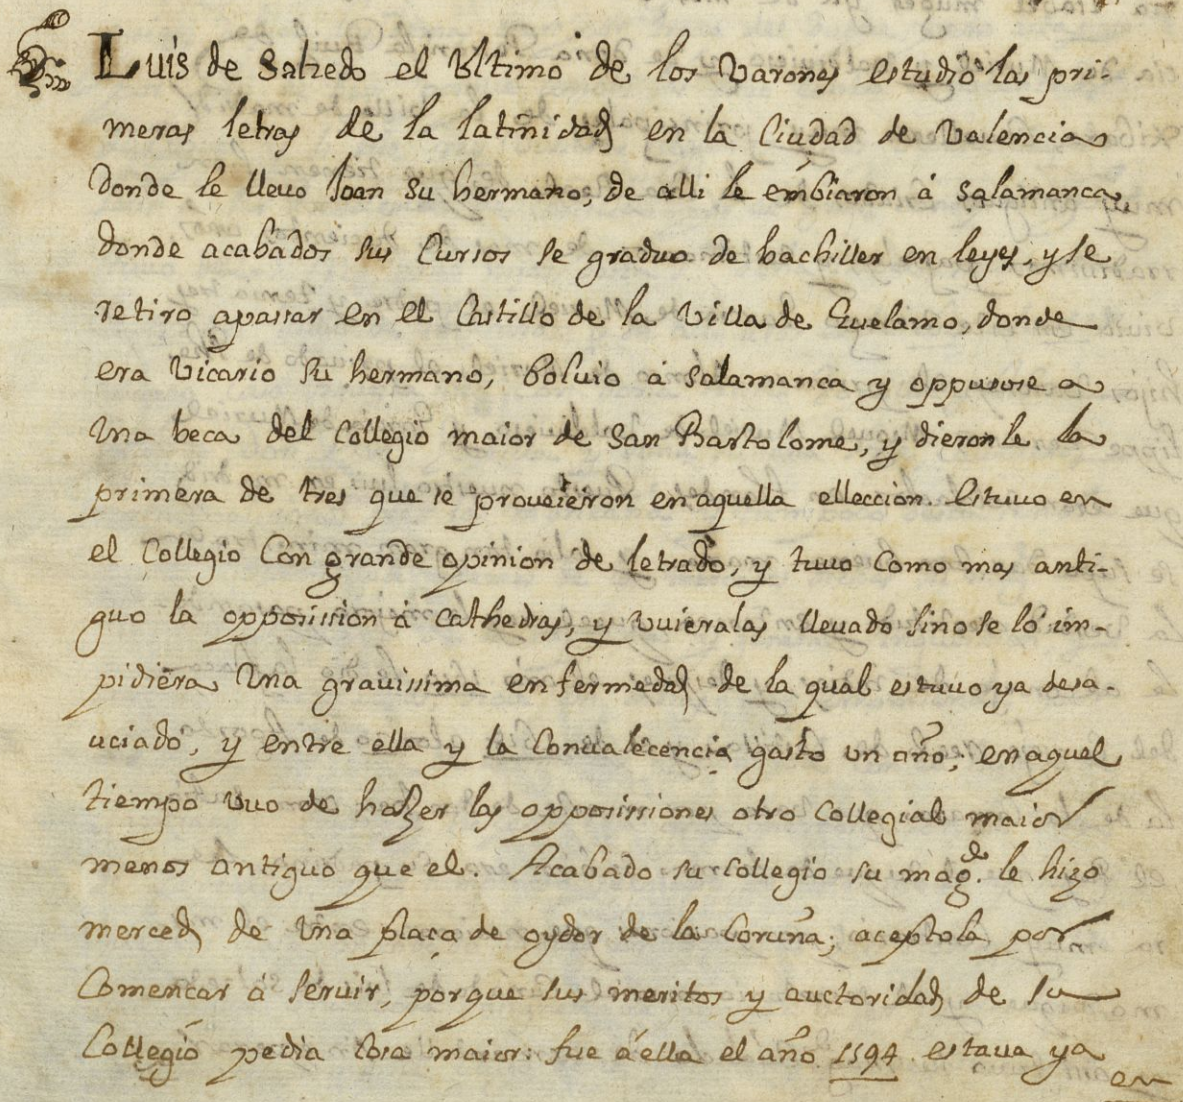 Luis de Salzedo el Ultimo de los Varones estudio las pri-
meras letras de la latinidad en la Ciudad de Valencia
donde le lleuo Joan su hermano, de alli le embiaron á Salamanca,
donde acabados sus Cursos se graduo de bachiller en leyes, y se
retiro apassar en el Castillo de la Villa de Guelamo, donde
era Vicario su hermano, boluio á Salamanca y oppusose a
Una beca del Collegio maior de San Bartolome, y dieron le la
primera de tres que se proueieron en aquella elleccion. Estuuo en
el Collegio Con grande opinion de letrado, y tuuo Como mas anti-
guo la opposission á Cathedras, y vuieralas lleuado sino se lo im-
pidiera Una grauissima enfermedad de la qual estuuo ya desa-
uciado, y entre ella y la Conualecencia gasto un año; en aquel
tiempo vuo de hazer las opposissiones otro Collegial maior
menos antiguo que el. Acabado su Collegio su mag.d le hizo
merced de Una plaça de oydor de la Coruña; aceptola por
Comencar á seruir, porque sus meritos y auctoridad de su
Collegio pedia Cosa maior: fue á ella el año 1594 estaua ya
en